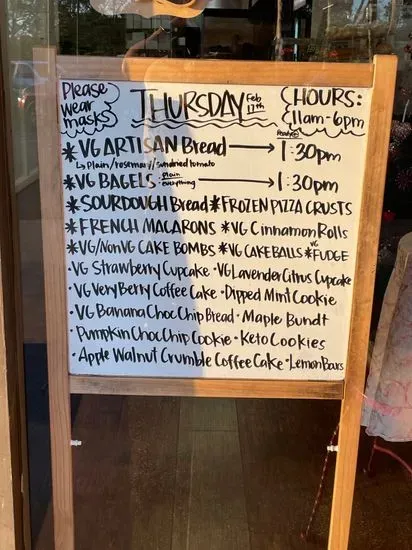 Please wear masks
THURSDAY Feb 17th
HOURS: 11am-6pm
Ready @
*VG ARTISAN Bread → 1:30pm
↳ Plain/rosemary/sundried tomato
*VG BAGELS · plain · everything → 1:30pm
*SOURDOUGH Bread *FROZEN PIZZA CRUSTS
*FRENCH MACARONS *VG Cinnamon Rolls
*VG/NonVG CAKE BOMBS *VG CAKE BALLS *VG FUDGE
·VG Strawberry Cupcake ·VG Lavender Citrus Cupcake
·VG Very Berry Coffee Cake ·Dipped Mint Cookie
·VG Banana Choc Chip Bread ·Maple Bundt
·Pumpkin Choc Chip Cookie ·Keto Cookies
·Apple Walnut Crumble Coffee Cake ·Lemon Bars